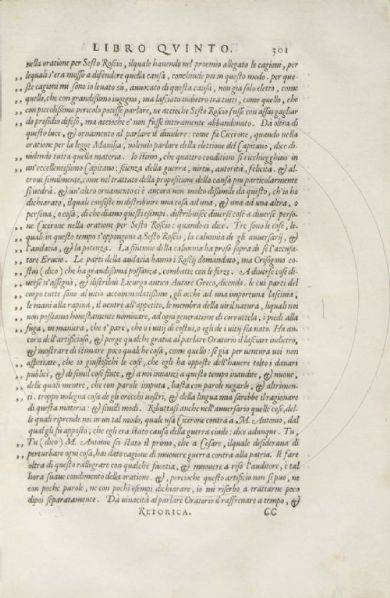 LIBRO QVINTO. 301
nella oratione per Sesto Roscio, ilquale hauendo nel proemio allegato le cagioni, per
lequali s'era mosso a difendere quella causa, conclude poi in questo modo. per que-
ste cagioni mi sono io leuato sù, auuocato di questa causa, non gia solo eletto, come
quello, che con grandissimo ingegno, ma lasciato indietro tra tutti, come quello, che
con piccolissimo pericolo potesse parlare, ne accioche Sesto Roscio fusse con assai gagliar
do presidio difeso, ma accioche e' non fusse interamente abbandonato. Da oltra di
questo luce, & ornamento al parlare il diuidere: come fa Cicerone, quando nella
oratione per la legge Manilia, volendo parlare della elettione del Capitano, dice di-
uidendo tutta quella materia. Io stimo, che quattro conditioni si ricchieghino in
un' eccellentissimo Capitano; scienza della guerra, virtù, autorità, felicità. & al
troue similmente, come nel trattato della propositione della causa piu particolarmente
si vedrà. & un'altro ornamento ci è ancora non molto dissimile da questo, ch'io ho
dichiarato, ilquale consiste in distribuire una cosa ad una, & una ad una altra, o
persona, o cosa, di che diamo questi esempi. distribuisce diuerse cose a diuerse perso-
ne Cicerone nella oratione per Sesto Roscio: quando ei dice. Tre sono le cose, le-
quali in questo tempo s'oppongono a Sesto Roscio, la calunnia de gli auuersarij, &
l'audacia, & la potenza. La fittione della calunnia ha preso sopra di se l'accusa-
tore Erucio. Le parti della audacia hanno i Roscij domandato, ma Crisogono co-
stui (dico) che ha grandissima possanza, combatte con le forze. A diuerse cose di-
uerse n'assegnò, & distribuì Licurgo antico Autore Greco, dicendo. le cui parti del
corpo tutte sono al uitio accommodatissime, gli occhi ad una importuna lasciuia,
le mani alla rapina, il uentre all'appetito, le membra della uiril natura, lequali noi
non possiamo honestamente nominare, ad ogni generatione di corruttela, i piedi alla
fuga, in maniera, che e' pare, che o i uitij di costui, o egli de i uitij sia nato. Ha an-
cora dell'artificioso, & porge qualche gratia al parlare Oratorio il lasciare indietro,
& mostrare di stimare poco qualche cosa, come quello: se gia per uentura uoi non
aspettate, che io giustifichi le cose, che egli ha opposte dell'hauere tolto i danari
publici, & di simil cose finte, & a noi innanzi a questo tempo inaudite, & nuoue,
delle quali mentre, che con parole imputa, basta con parole negarle, & altrimen-
ti. troppo indegna cosa de gli orecchi uostri, & della lingua mia sarebbe il ragionare
di questa materia: & simili modi. Ributtasi anche nell'auuersario quelle cose, del-
le quali riprende noi in un tal modo, quale usa Cicerone contra a M. Antonio, dal
qual gli fu apposto, che egli era stato causa della guerra ciuile: dice adunque. Tu,
Tu (dico) M. Antonio sei stato il primo, che a Cesare, ilquale desideraua di
perturbare ogni cosa, hai dato cagione di muouere guerra contra alla patria. Il fare
oltra di questo rallegrare con qualche facetia, & muouere a riso l'auditore, è tal
hora suaue condimento della oratione. &, percioche questo artificio non si puo, ne
con poche parole, ne con pochi esempi dichiarare, io mi riserbo a trattarne poco
dipoi separatamente. Dà uiuacità al parlare Oratorio il raffrenare a tempo, &
RETORICA. CC